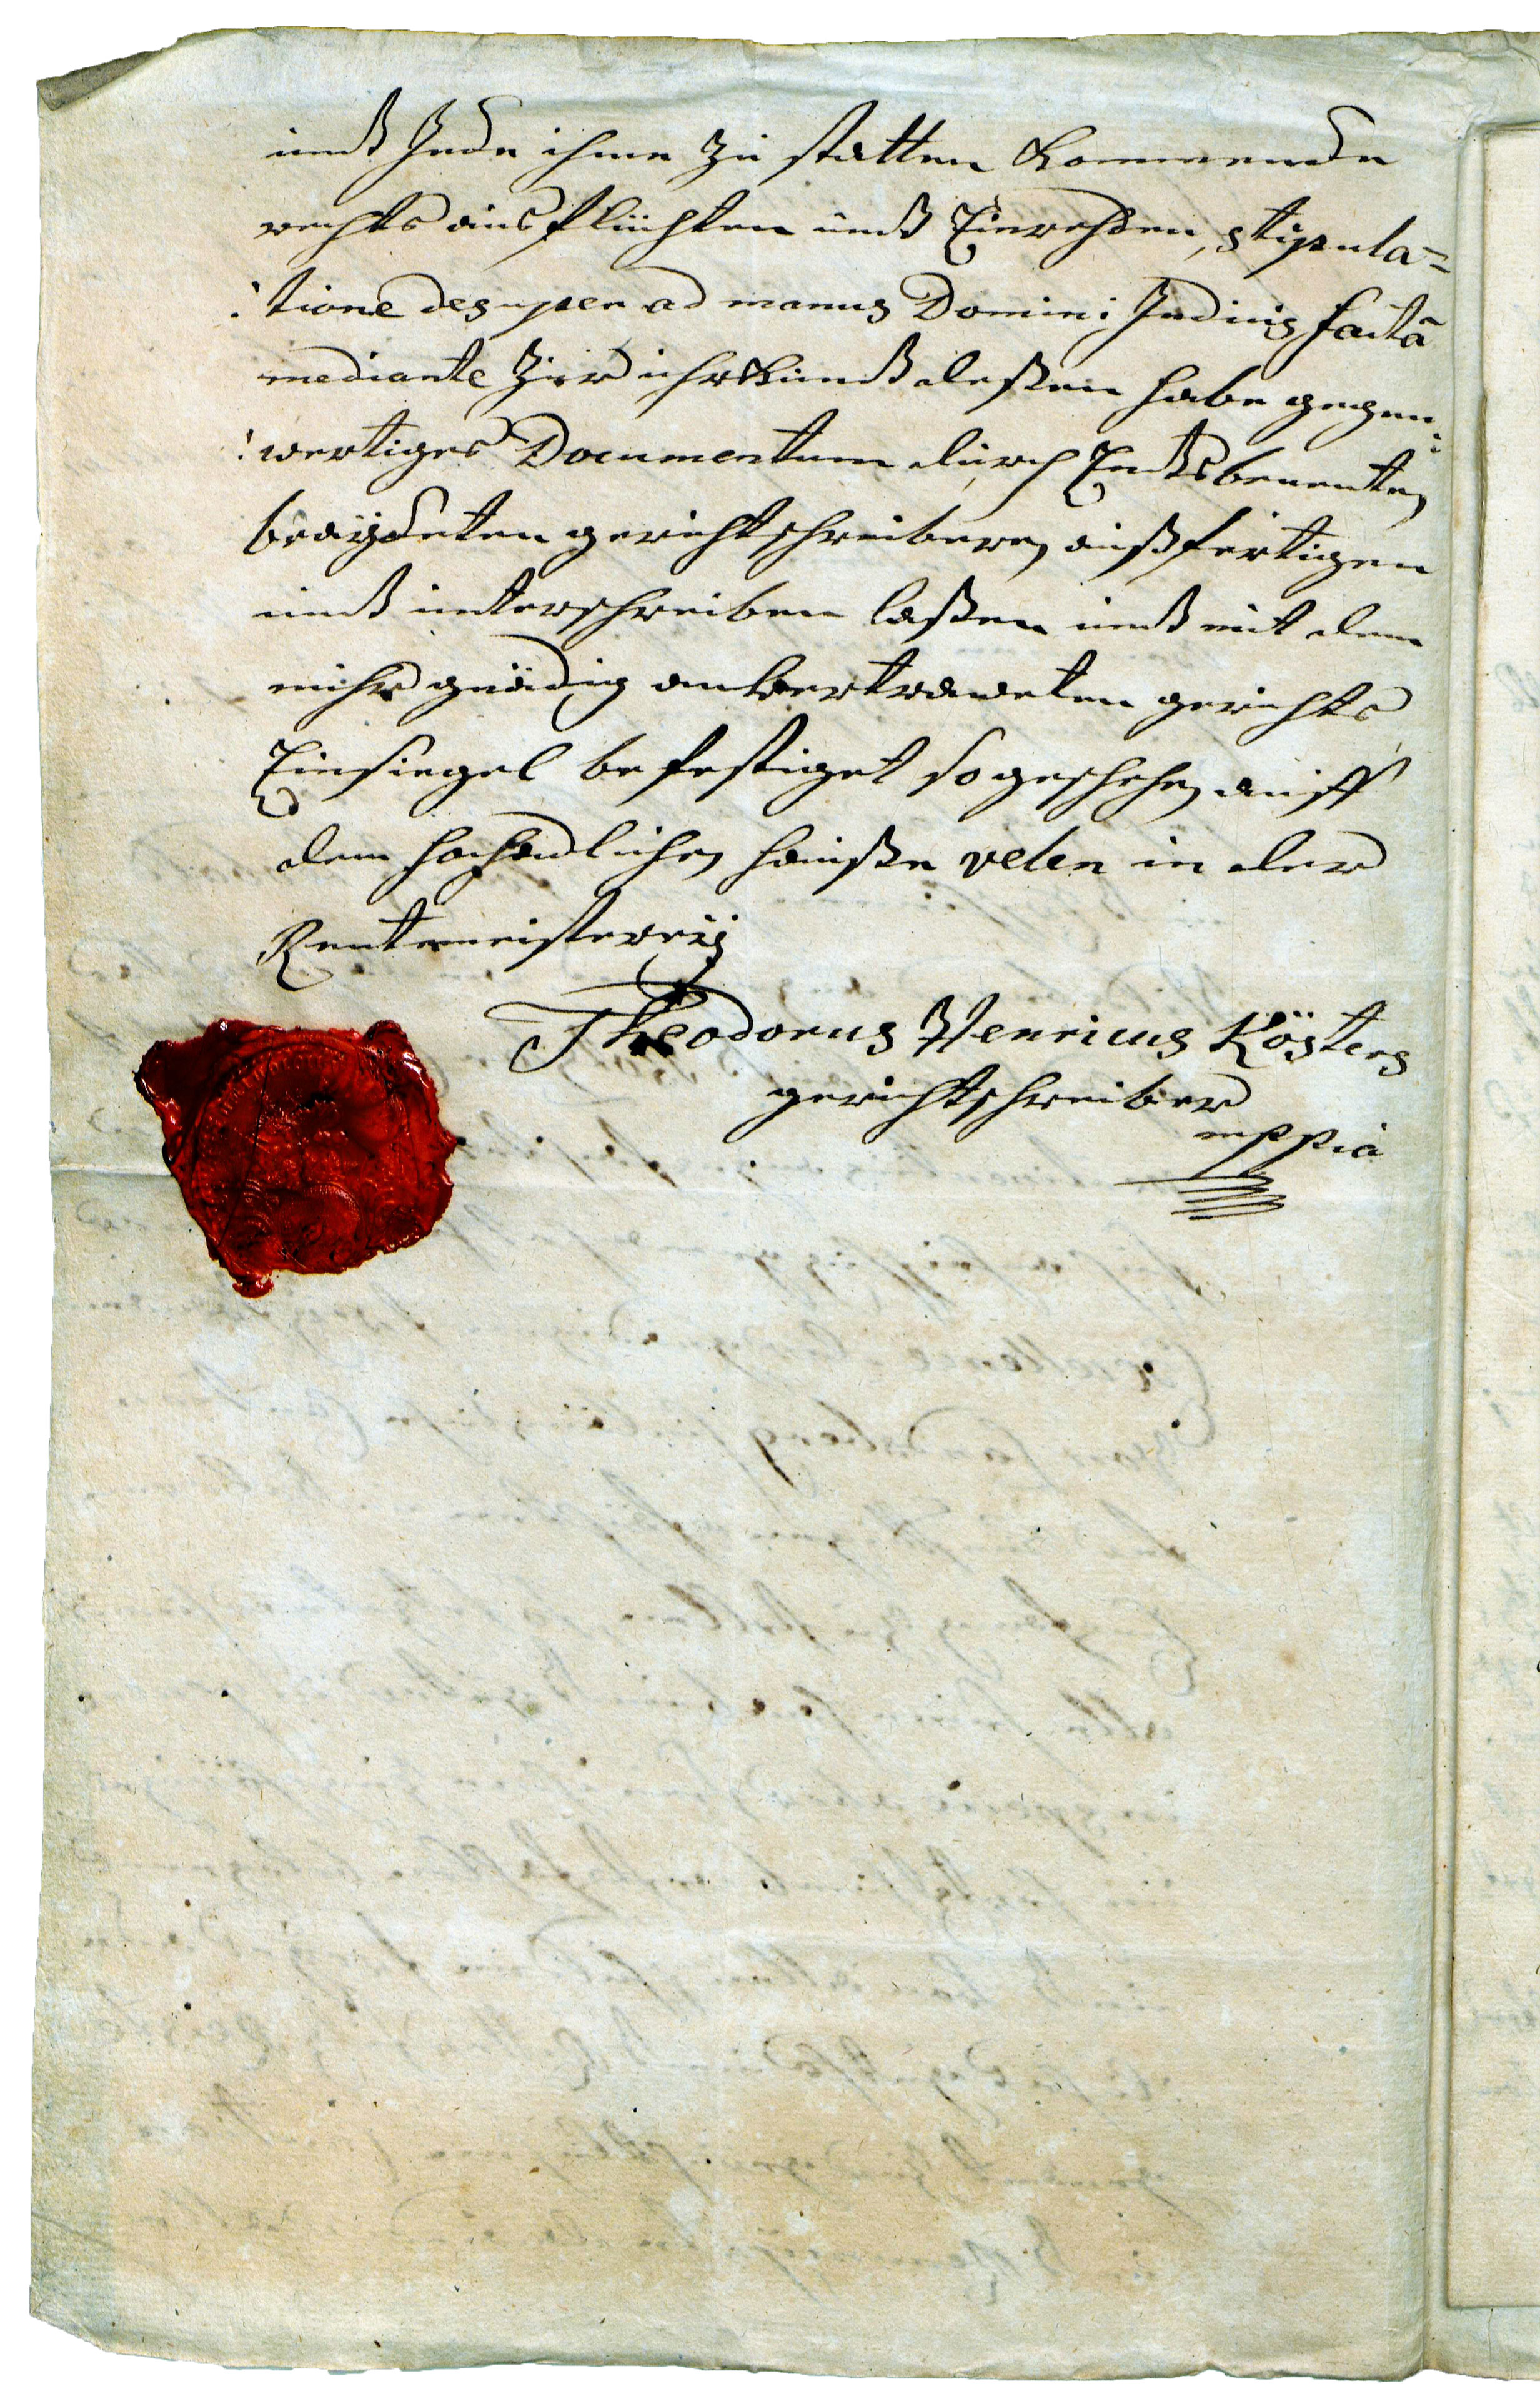 undt Jede ihme zu statten kommende
rechts ausflüchten undt Einrehden, stipula=
:tione desuper ad manus Domini Judicis factâ
mediante Zur uhrkundt deßen habe gegen=
:wertiges Documentum durch Endtsbenenten
beaÿdeten gerichtschreiberen außfertigen
undt unterschreiben laßen undt mit dem
mihr gnädig anvertraweten gerichts
Einsiegel befestiget so geschehen auff
dem hochadlichen hauße velen in der
Rentemeistereÿ
Theodorus Henricus Kösters
gerichtschreiber
mppia